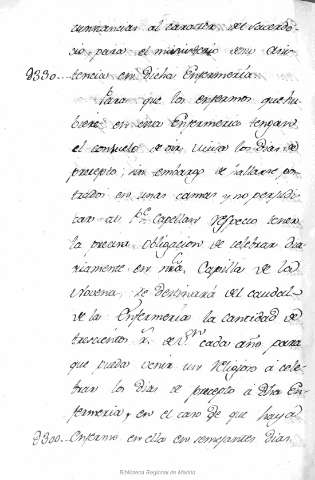 cunstancias al caracter del Sacerdo-
cio para el ministerio de su Asis-
2330.. tencia en dicha Enfermeria.
Para que los enfermos que hu-
biere en esta Enfermeria tengan
el consuelo de oir Missa los Dias de
precepto, sin embargo de hallarse pos-
trados en unas camas y no perjudi-
car al P.e Capellan respecto tener
la precisa obligacion de celebrar dia-
riamente en nra. Capilla de la
Novena, se destinará del caudal
de la Enfermeria la cantidad de
trescientos r.s de v.on cada año para
que pueda venir un Religioso á cele-
brar los dias de precepto á dha En-
fermeria, en el caso de que haya
2300.. enfermo en ella en semejantes dias.
Biblioteca Regional de Madrid